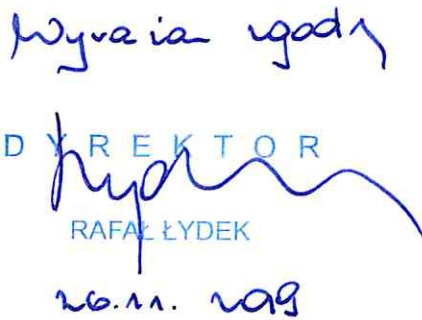 Wyrażam zgodę
DYREKTOR
RAFAŁ ŁYDEK
26.11.2019